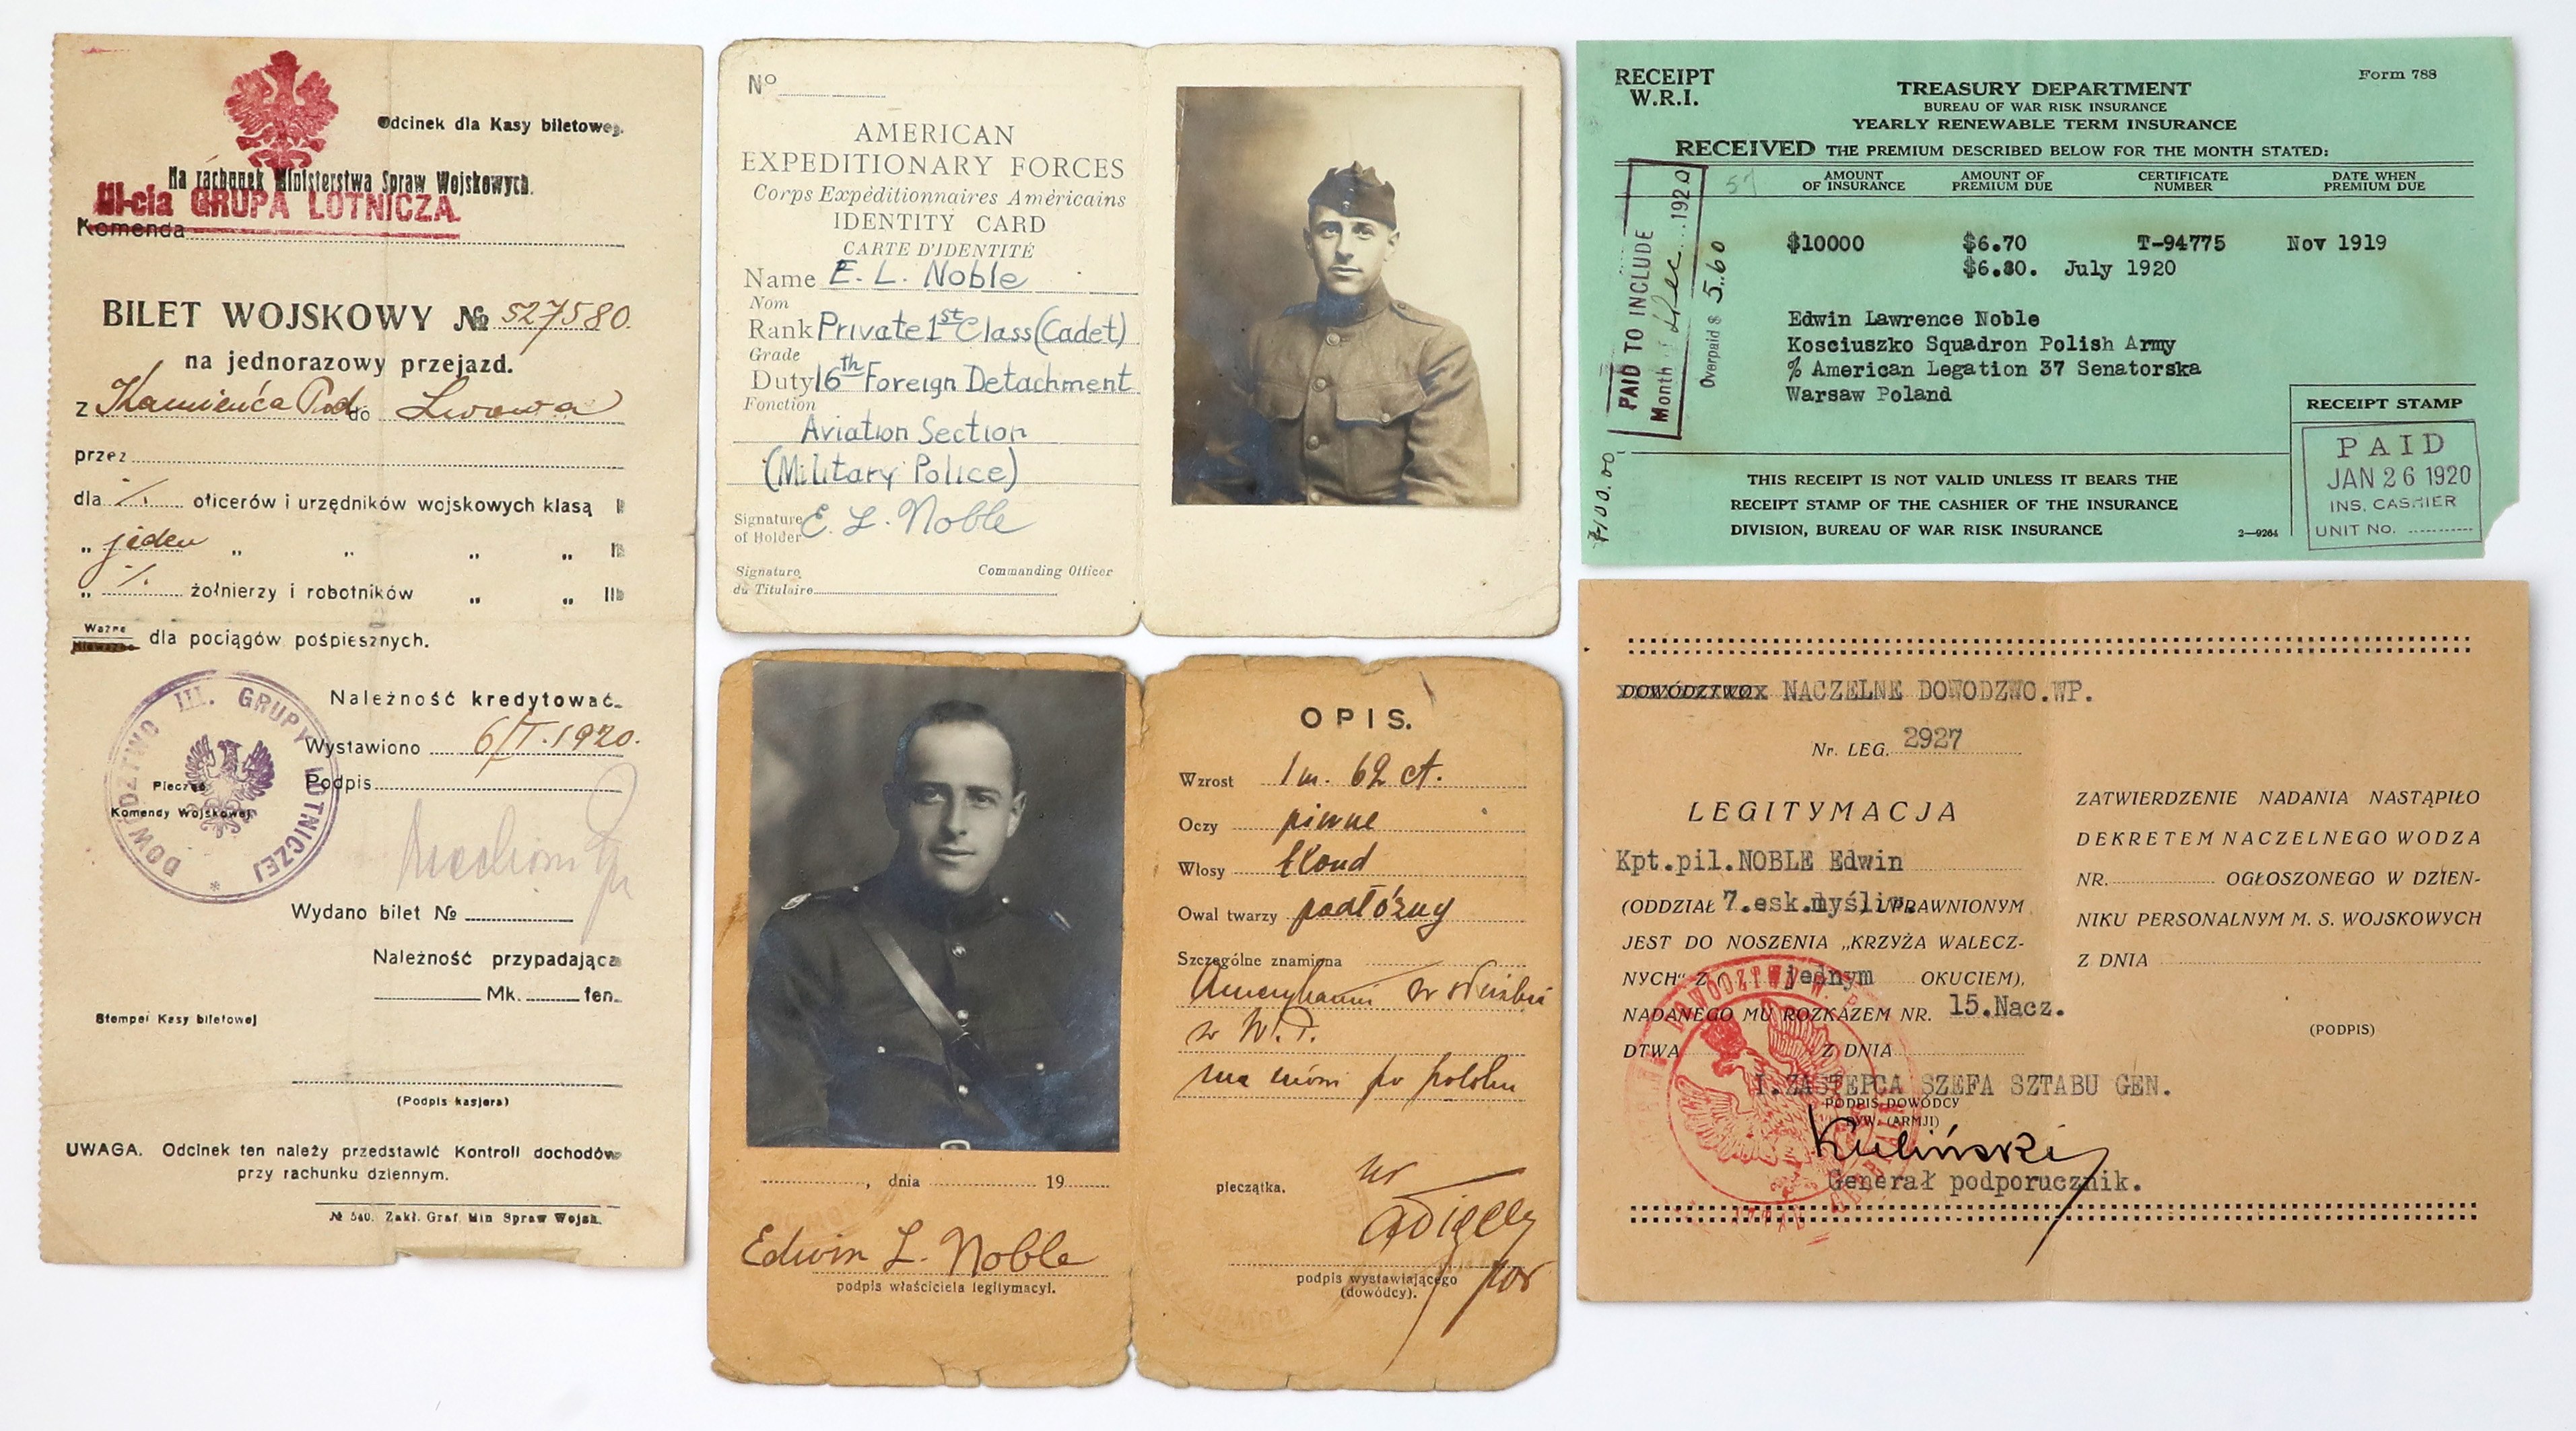 Odcinek dla Kasy biletowej.
Na rachunek Ministerstwa Spraw Wojskowych.
III-cia GRUPA LOTNICZA
Komenda
BILET WOJSKOWY № 527580.
na jednorazowy przejazd.
z Kamieńca Pod. do Lwowa
przez
dla ./. oficerów i urzędników wojskowych klasą I
„ jeden „ „ „ „ II
„ ./. żołnierzy i robotników „ „ III
Ważne
dla pociągów pośpiesznych.
Należność kredytować.
Wystawiono 6/I.1920.
Podpis
Pieczęć
Komendy Wojskowej
DOWÓDZTWO III. GRUPY LOTNICZEJ *
Wydano bilet №
Należność przypadająca
Mk. fen.
Stempel Kasy biletowej
(Podpis kasjera)
UWAGA. Odcinek ten należy przedstawić Kontroli dochodów
przy rachunku dziennym.
№ 540. Zakł. Graf. Min Spraw Wojsk.
Nº
AMERICAN
EXPEDITIONARY FORCES
Corps Expéditionnaires Américains
IDENTITY CARD
CARTE D'IDENTITÉ
Name E. L. Noble
Nom
Rank Private 1st Class (Cadet)
Grade
Duty 16th Foreign Detachment
Fonction
Aviation Section
(Military Police)
Signature of Holder E. L. Noble
Signature du Titulaire
Commanding Officer
dnia 19
Edwin L. Noble
podpis właściciela legitymacyi.
OPIS.
Wzrost 1 m. 62 ct.
Oczy piwne
Włosy blond
Owal twarzy podłóżny
Szczególne znamiona
w W.P.
pieczątka.
por
podpis wystawiającego
(dowódcy).
RECEIPT
W.R.I.
Form 788
TREASURY DEPARTMENT
BUREAU OF WAR RISK INSURANCE
YEARLY RENEWABLE TERM INSURANCE
RECEIVED THE PREMIUM DESCRIBED BELOW FOR THE MONTH STATED:
AMOUNT OF INSURANCE AMOUNT OF PREMIUM DUE CERTIFICATE NUMBER DATE WHEN PREMIUM DUE
$10000 $6.70 T-94775 Nov 1919
$6.80. July 1920
Edwin Lawrence Noble
Kosciuszko Squadron Polish Army
% American Legation 37 Senatorska
Warsaw Poland
PAID TO INCLUDE
Month of Dec 1920
Overpaid $ 5.60
RECEIPT STAMP
PAID
JAN 26 1920
INS. CASHIER
UNIT NO.
THIS RECEIPT IS NOT VALID UNLESS IT BEARS THE
RECEIPT STAMP OF THE CASHIER OF THE INSURANCE
DIVISION, BUREAU OF WAR RISK INSURANCE
2—9264
DOWÓDZTWO NACZELNE DOWODZWO.WP.
Nr. LEG. 2927
LEGITYMACJA
Kpt.pil.NOBLE Edwin
(ODDZIAŁ 7.esk.myśliw. UPRAWNIONYM
JEST DO NOSZENIA „KRZYŻA WALECZ-
NYCH" Z jednym OKUCIEM),
NADANEGO MU ROZKAZEM NR. 15.Nacz.
DTWA Z DNIA
I.ZASTEPCA SZEFA SZTABU GEN.
PODPIS DOWÓDCY
DYW. (ARMJI)
Kuliński
Generał podporucznik.
ZATWIERDZENIE NADANIA NASTĄPIŁO
DEKRETEM NACZELNEGO WODZA
NR. OGŁOSZONEGO W DZIEN-
NIKU PERSONALNYM M. S. WOJSKOWYCH
Z DNIA
(PODPIS)